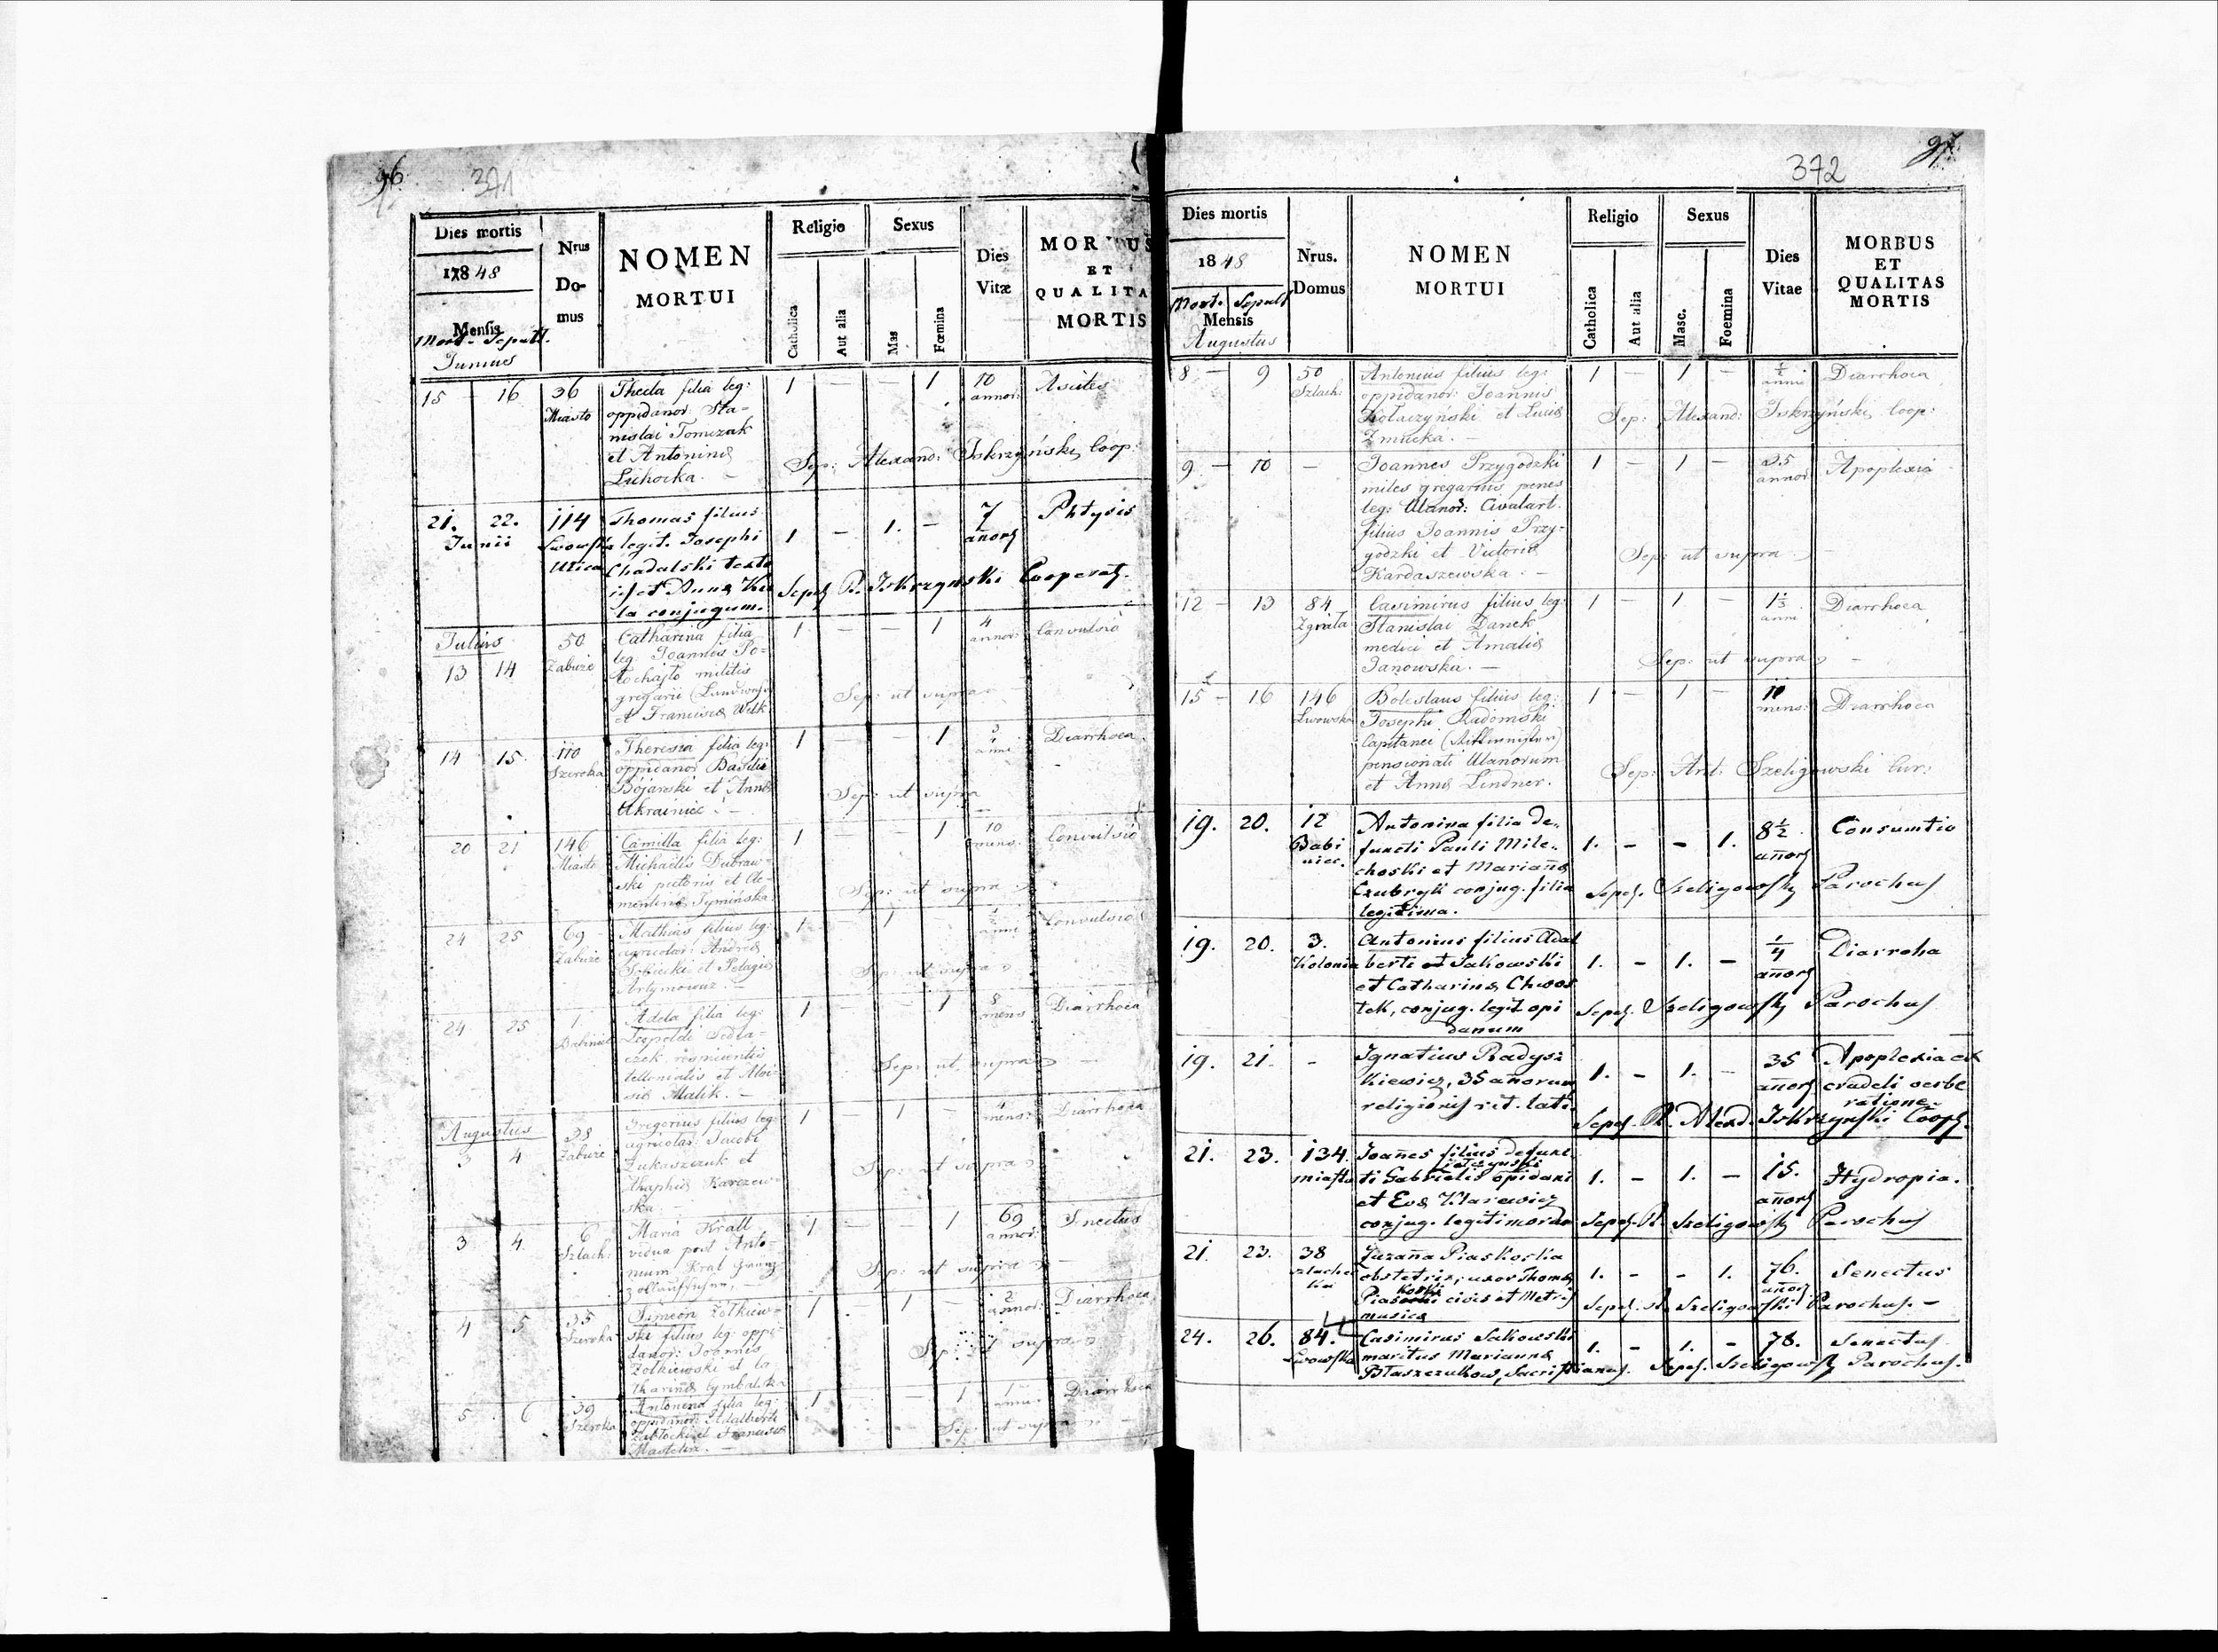 96
371
Dies mortis
1848
Mensis
Mort. Sepult.
Junius
Nrus Domus
NOMEN
MORTUI
Religio
Catholica
Aut alia
Sexus
Mas
Fœmina
Dies
Vitæ
ET
MORTIS
15 - 16 36 Thecla filia leg: 1 - - 1 10 Ascites
Miasto oppidanor: Sta- annor:
nislai Tomczak
et Antoninæ Sep: Alexand: Iskrzyński Coop:
Lichocka. -
21. 22. 114 Thomas filius 7 Phtysis
Junii Lwowska legit. Josephi 1 - 1. -
Ulica Chadalski
et Annæ Sepel. R. Iskrzynski Cooperat.
la conjugum.
Julius 50 Catharina filia 1 - - 1 4 Convulsio
13 14 Zabuże leg. Joannis Po- annor:
tochajło militis
gregarii Sep: ut supra
et Franciscæ Wilk
14 15 110 Theresia filia leg: 1 - - 1 Diarrhoea
Szeroka oppidanor: Basilii anni
Bojarski et Annæ Sep: ut supra
Ukrainiec. -
20 21 146 Camilla filia leg: 1 - - 1 10 Convulsio
Miasto Michaelis Dubraw- mens:
ski pictoris et Cle-
mentinæ Tymińska Sep: ut supra
24 25 69 Mathias filius leg: 1 - 1 - 1/2 Convulsio
Zabuże agricolar: Andreæ anni
et Pelagiæ Sep: ut supra
Artymowicz. -
24 25 1 Adela filia leg: 1 - - 1 8 Diarrhoea
Babiniec Leopoldi Sedla- mens
czek
et Aloi- Sep: ut supra
siæ Malik. -
Augustus 38 Gregorius filius leg: 1 - 1 - 4 Diarrhoea
3 4 Zabuże agricolar: Jacobi mens:
Łukaszczuk et
Karczew- Sep: ut supra
ska. -
3 4 6 Maria Krall 1 - - 1 69 Senectus
Szlach: vidua post Anto- annor:
nium Kral Sep: ut supra
4 5 35 Simeon Żołkiew- 1 - 1 - 2 Diarrhoea
Szeroka ski filius leg: oppi- annor:
danor: Joannis Sep: ut supra
Żołkiewski et Ca-
tharinæ Cymbalska
5 6 39 Antonina filia leg: 1 - - 1 1 Diarrhoea
Szeroka oppidanor: Adalberti anni
Zabłocki et Franciscæ Sep: ut supra
97
372
Dies mortis
1848
Mort. Sepult
Mensis
Augustus
Nrus.
Domus
NOMEN
MORTUI
Religio
Catholica
Aut alia
Sexus
Masc.
Foemina
Dies
Vitae
MORBUS
ET
QUALITAS
MORTIS
8 - 9 50 Antonius filius leg: 1 - 1 - 1/2 Diarrhoea
Szlach: oppidanor: Joannis anni
Kołaczyński et Luciæ Sep: Alexand: Iskrzyński, Coop:
Zmucka. -
9 - 10 - Joannes Przygodzki 1 - 1 - 35 Apoplexia
miles gregarius penes annor:
leg: Ulanor: Civalart.
filius Joannis Przy-
godzki et Victoriæ Sep: ut supra -
Kardaszewska. -
12 - 13 84 Casimirus filius leg: 1 - 1 - 1 1/3 Diarrhoea
Zgniła Stanislai Danek anni
medici et Amaliæ Sep: ut supra -
Janowska. -
15 - 16 146 Boleslaus filius leg: 1 - 1 - 10 Diarrhoea
Lwowska Josephi Radomski mens:
Capitanei (Rittmeister)
pensionati Ulanorum Sep: Ant: Szeligowski Cur:
et Annæ Lindner.
19. 20. 12 Antonina filia de- 8 1/2 Consumtio
Babi functi Pauli Mile- 1. - - 1. añor
niec. choski et Mariañæ
Czubryk conjug. filia Sepel. Szeligowsky Parochus
legitima.
19. 20. 3. Antonius filius Adal 1/4 Diarroha
Kolonia berti Sakowski 1. - 1. - añor
et Catharinæ Chwos
tek, conjug. legit opi Sepel. Szeligowsky Parochus
danum
19. 21. - Ignatius Radysz 35 Apoplexia ex
kiewicz, 35 añorum 1. - 1. - añor crudeli verbe
religionis rit. lati. ratione.
Sepel. R. Alexd. Iskrzynski Coop.
21. 23. 134. Joañes filius defunc 15.
miasto ti Gabrielis opidani 1. - 1. - añor Hydropia.
et Evæ Klarewicz
conjug. legitimorum Sepel. R. Szeligowsky Parochus
21. 23. 38 Zuzaña Piaskorska 76. Senectus
szlachec obstetrix, uxor Thomæ 1. - - 1. añor
ka civis et Sepel. R. Szeligowski Parochus. -
musicæ
24. 26. 84. Casimirus Sakowski 1. - 1. - 78. Senectus
Lwowska maritus Mariannæ
Błaszczukow, Sacristianus. Sepel. Szeligowsky Parochus.